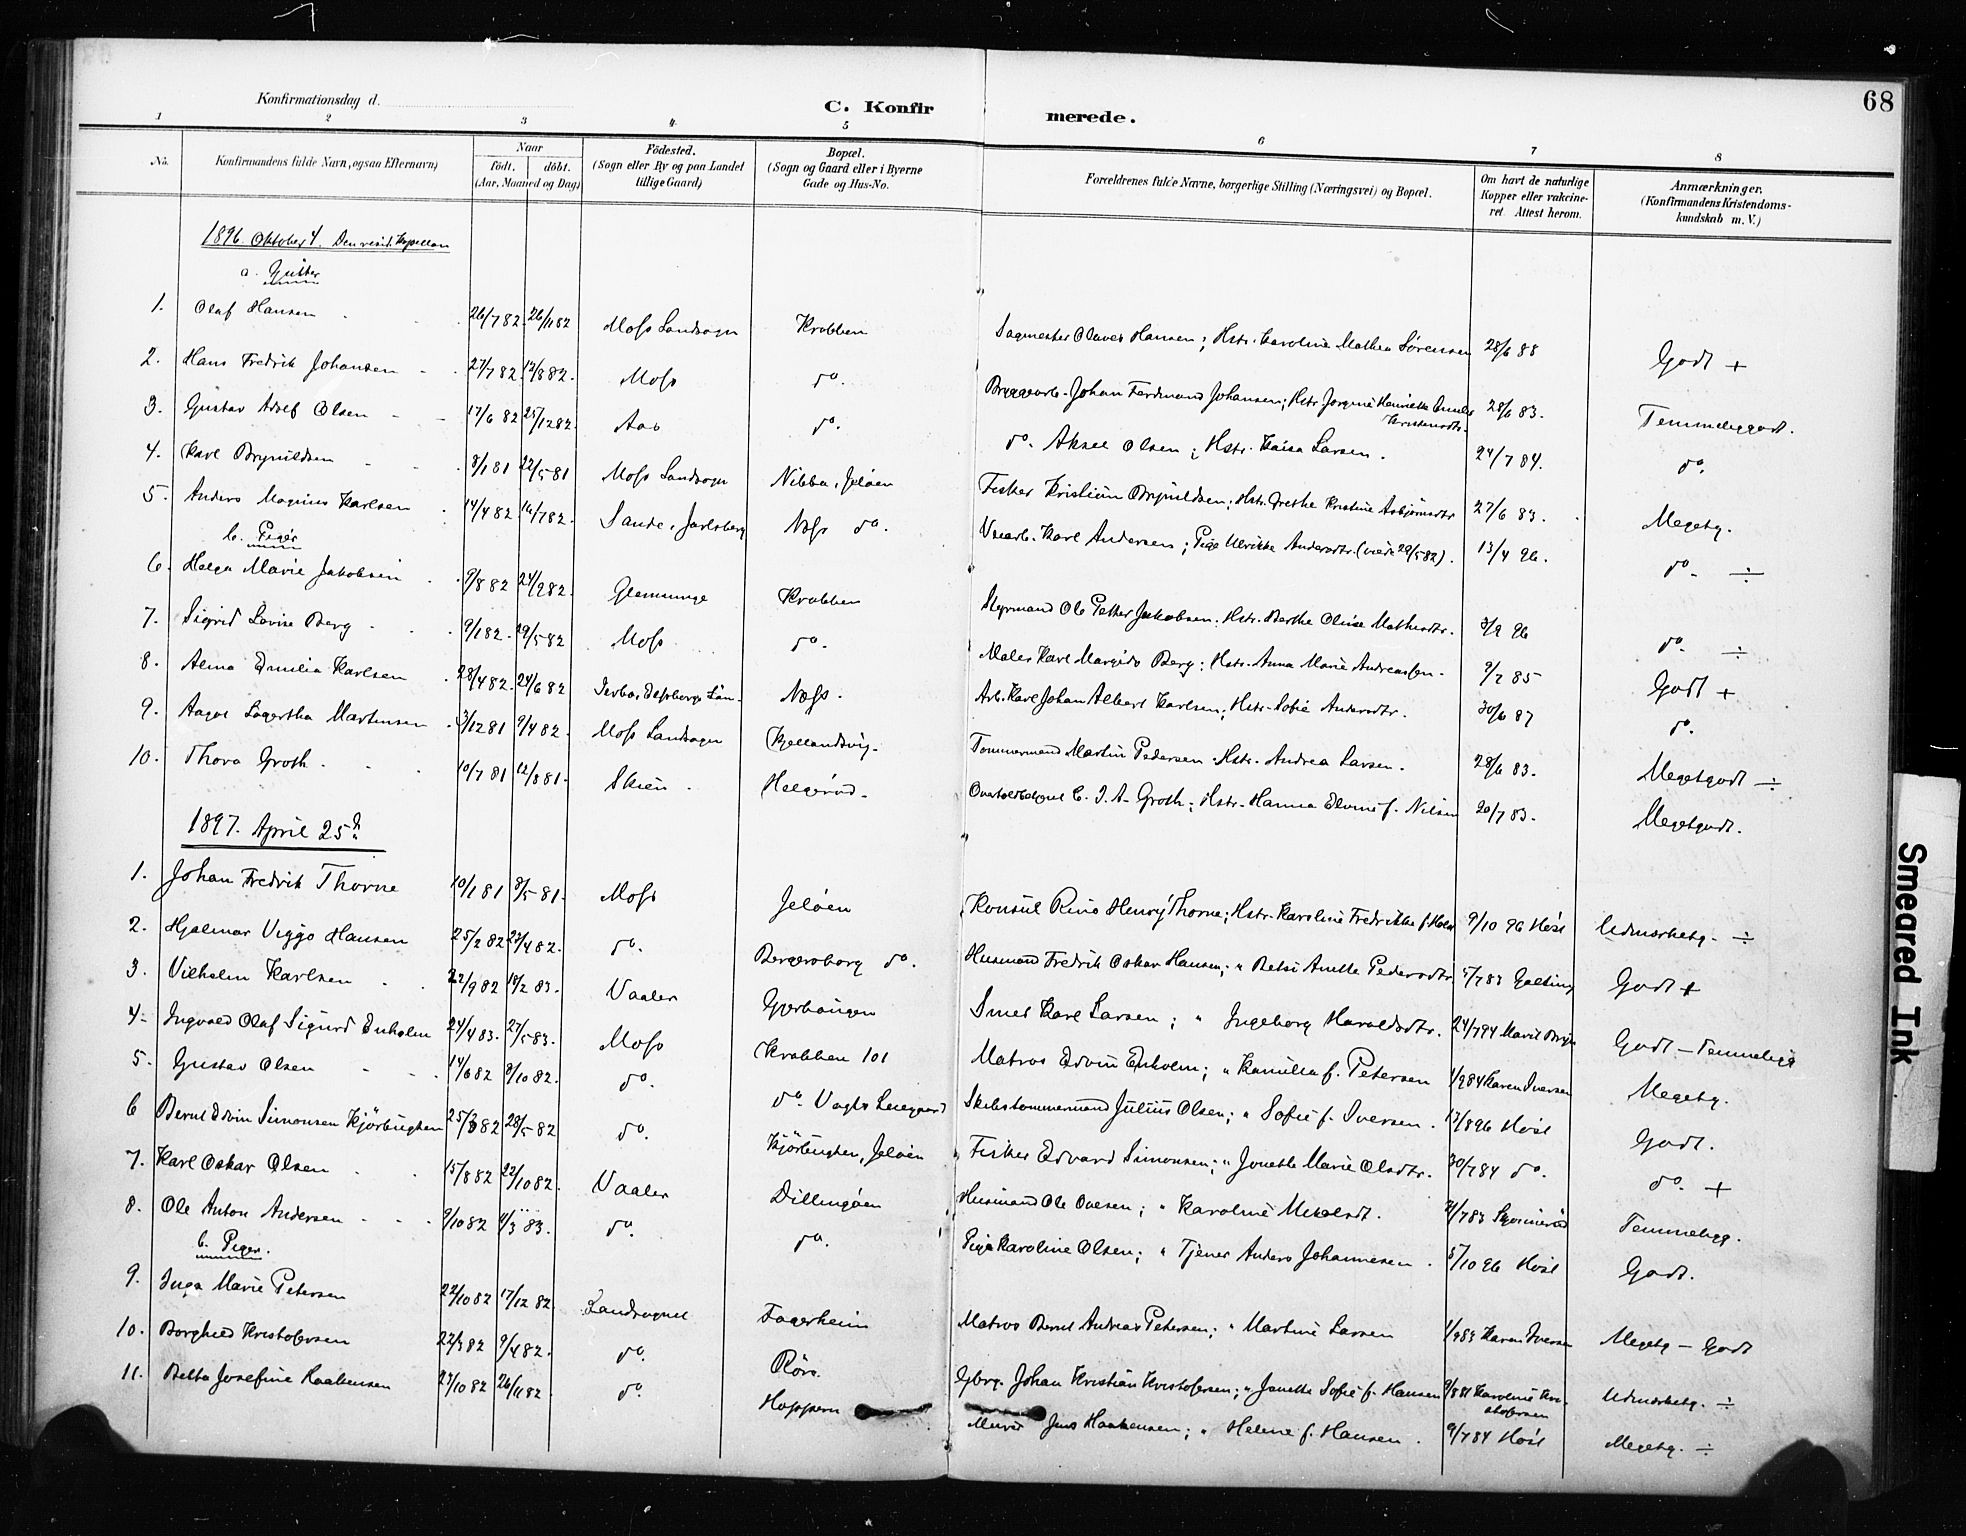 68
Konfirmationsdag d.
C. Konfirmerede.
1 2 3 4 5 6 7 8
No. Konfirmandens fulde Navn, ogsaa Efternavn) Naar født. døbt. (Aar, Maaned og Dag) Fødested. (Sogn eller By og paa Landet tillige Gaard) Bopæl. (Sogn og Gaard eller i Byerne Gade og Hus-No. Forældrenes fulde Navne, borgerlige Stilling (Næringsvei) og Bopæl. Om havt de naturlige Kopper eller vakcineret. Attest herom. Anmærkninger. (Konfirmandens Kristendomskundskab m. V.)
1896. Oktober 4. Den resid. Kapellan
a. Gutter
1. Olaf Hansen 26/7 82 26/11 82 Moss Landsogn Krabben Sagmester Olaves Hansen; Hstr. Karoline Mathea Sørensen 28/6 88 Godt +
2. Hans Fredrik Johansen 27/7 82 13/8 82. Moss do. Bryggearb. Johan Ferdinand Johansen; Hstr Jørgine Henriette Kristensdtr. 28/6 83. Temmeliggodt.
3. Gustav Adolf Olsen 17/6 82 25/12 82. Aas do. do. Aksel Olsen; Hstr. Kaisa Larsen. 24/7 84. do.
4. Karl Brynildsen 8/1 81 22/5 81 Moss Landsogn Nibba, Jeløen Fisker Kristian Brynildsen; Hstr. Grethe Kristine Asbjørnsdtr 27/6 83. Megetg.
5. Anders Magnus Karlsen 14/4 82 16/7 82. Sande, Jarlsberg Næss do. Karl Andersen; Pige Ulrikke Andersdtr. (viede 29/5 82). 13/4 96. do. ÷
b. Piger
6. Helga Marie Jakobsen 9/8 82 24/9 82. Glemminge Krabben Styrmand Ole Petter Jakobsen. Hstr. Berthe Oline Mathisdtr. 3/9 96 do. ÷
7. Sigrid Lovise Berg 9/1 82. 29/5 82 Moss do. Maler Karl Margido Berg; Hstr. Anna Marie Andreassen. 9/2 85 Godt +
8. Alma Emilia Karlsen 28/4 82. 24/6 82 Næss. Arb. Karl Johan Albert Karlsen; Hstr. Sofie Andersdtr. 30/6 87 do.
9. Aagot Lagertha Martinsen 3/12 81 9/4 82. Moss Landsogn Kjellandsvig. Tømmermand Martin Pedersen. Hstr. Andrea Larsen. 28/6 83. Megetgodt ÷
10. Thora Groth 10/7 81 12/8 81. Skien. Helgerød. C. I. A. Groth; Hstr. Hanna Elvine f. Nilsen 20/7 83. Megetgodt.
1897. April 25de
1. Johan Fredrik Thorne 10/1 81 8/5 81. Moss Jeløen Konsul Rino Henry Thorne; Hstr. Karoline Fredrikke f. Holst 9/10 96 Høst Udmærketg. ÷
2. Hjalmar Viggo Hansen 25/2 82. 23/4 82. do. Bergersborg do. Husmand Fredrik Oskar Hansen; " Betsi Anette Pedersdtr. 5/7 83 Galtung Godt +
3. Vilhelm Karlsen 22/9 82 18/2 83. Vaaler Gjerhaugen Smed Karl Larsen; " Ingeborg Haraldsdtr. 24/7 94 Godt. – Temmeligg
4. Ingvald Olaf Sigurd Enholm 24/4 83. 27/5 83. Moss Krabben 101 Matros Edvin Enholm; " Kamilla f. Petersen 1/9 84 Karen Iversen Megetg.
5. Gustav Olsen 14/6 82 8/10 82. do. do. Vogts Leiegaard Skibstømmermand Julius Olsen; " Sofie f. Iversen. 17/8 96 Høst Godt.
6 Bernt Edvin Simonsen Kjørbugten 25/3 82 28/5 82 do. Kjørbugten, Jeløen Fisker Edvard Simonsen; " Jonette Marie Olsdtr. 30/7 84 do. do. +
7. Karl Oskar Olsen 15/8 82 22/10 82. Vaaler Dillingøen Husmand Ole Olesen; " Karoline 31/7 83 Temmeligg.
8. Ole Anton Andersen 9/10 82 4/3 83. do. do. Pige Karoline Olsen; " Tjener Anders Johannesen. 5/10 96 Høst Godt.
b. Piger.
9. Inga Marie Petersen 22/10 82 17/12 82. Landsognet Fagerheim Matros Bernt Andreas Petersen; " Martine Larsen 1/9 83 Karen Iversen Megetg – Godt
10. Borghild Kristofersen 22/3 82 9/4 82. do. Rørs. Gbrg. Johan Kristian Kristofersen; " Janette Sofie f. Hansen 9/8 81 Karoline Kristofersen Udmærketg. ÷
11. Betta Josefine Haakensen 27/10 82 26/11 82 do. Hoppern Murer Jens Haakensen; " Helene f. Hansen. 9/7 84 Høst Megetg. ÷
Smeared Ink